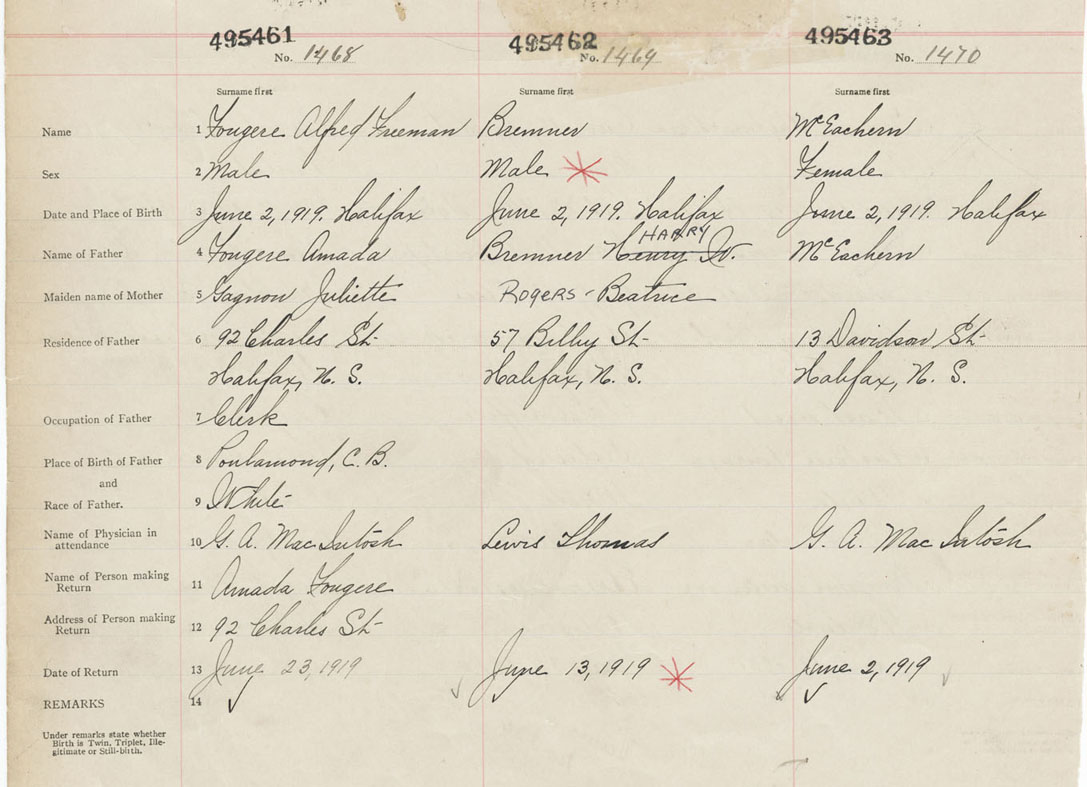 495461 495462 495463
No. 1468 No. 1469 No. 1470
Surname first Surname first Surname first
Name 1 Fougere Alfred Freeman Bremner McEachern
Sex 2 Male Male Female
Date and Place of Birth 3 June 2, 1919. Halifax June 2, 1919. Halifax June 2, 1919. Halifax
HARRY
Name of Father 4 Fougere Amada Bremner Henry W. McEachern
Maiden name of Mother 5 Gagnon Juliette ROGERS - Beatrice
Residence of Father 6 92 Charles St- 57 Bilby St- 13 Davidson St-
Halifax, N. S. Halifax, N. S. Halifax, N. S.
Occupation of Father 7 Clerk
Place of Birth of Father 8 C. B.
and
Race of Father. 9 White
Name of Physician in
attendance 10 G. A. Mac Intosh Lewis Thomas G. A. Mac Intosh
Name of Person making
Return 11 Amada Fougere
Address of Person making
Return 12 92 Charles St-
Date of Return 13 June 23, 1919 June 13, 1919 June 2, 1919
REMARKS 14
Under remarks state whether
Birth is Twin, Triplet, Ille-
gitimate or Still-birth.